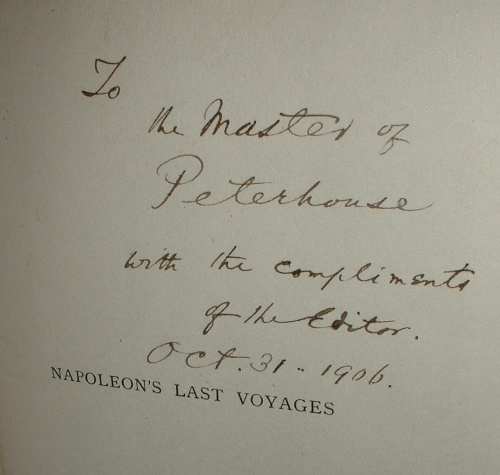 To
the Master of
Peterhouse
with the compliments
of the Editor.
Oct. 31.. 1906.
NAPOLEON'S LAST VOYAGES